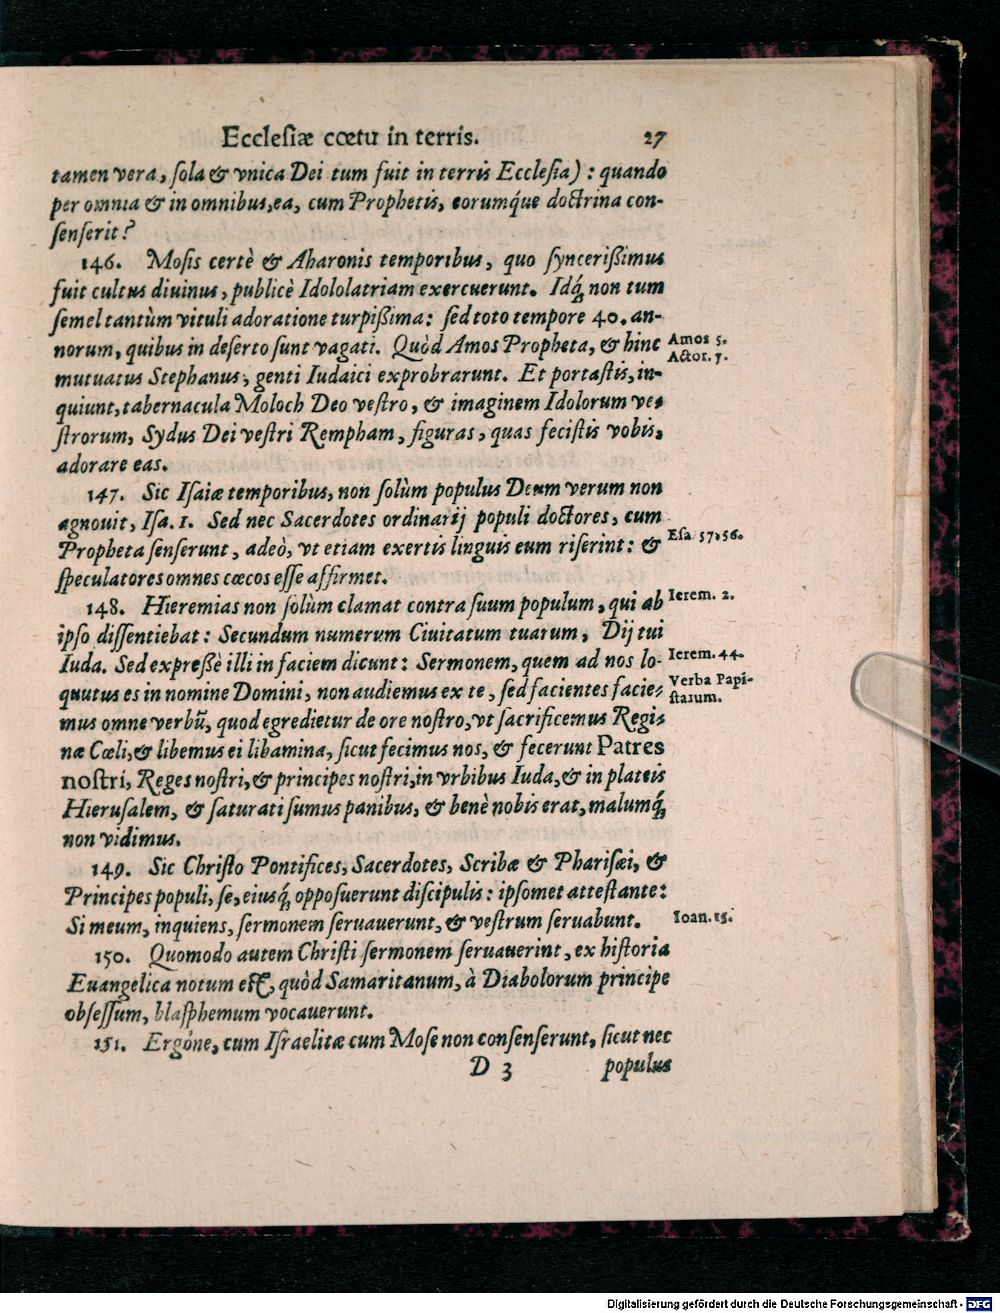 Ecclesiæ cœtu in terris. 27
tamen vera, sola & vnica Dei tum fuit in terris Ecclesia) : quando
per omnia & in omnibus, ea, cum Prophetis, eorumq́ue doctrina con-
senserit?
146. Mosis certè & Aharonis temporibus, quo syncerißimus
fuit cultus diuinus, publicè Idololatriam exercuerunt. Idq́; non tum
semel tantùm vituli adoratione turpißima: sed toto tempore 40. an-
norum, quibus in deserto sunt vagati. Quòd Amos Propheta, & hinc
Amos 5.
Actor. 7.
mutuatus Stephanus, genti Iudaici exprobrarunt. Et portastis, in-
quiunt, tabernacula Moloch Deo vestro, & imaginem Idolorum ve-
strorum, Sydus Dei vestri Rempham, figuras, quas fecistis vobis,
adorare eas.
147. Sic Isaiæ temporibus, non solùm populus Deum verum non
agnouit, Isa. 1. Sed nec Sacerdotes ordinarij populi doctores, cum
Propheta senserunt, adeò, vt etiam exertis linguis eum riserint: &
Esa 57. 56.
speculatores omnes cœcos esse affirmet.
148. Hieremias non solùm clamat contra suum populum, qui ab
Ierem. 2.
ipso dissentiebat: Secundum numerum Ciuitatum tuarum, Dij tui
Iuda. Sed expreßè illi in faciem dicunt: Sermonem, quem ad nos lo-
Ierem. 44.
quutus es in nomine Domini, non audiemus ex te, sed facientes facie-
Verba Papi-
starum.
mus omne verbũ, quod egredietur de ore nostro, vt sacrificemus Regi-
næ Cœli, & libemus ei libamina, sicut fecimus nos, & fecerunt Patres
nostri, Reges nostri, & principes nostri, in vrbibus Iuda, & in plateis
Hierusalem, & saturati sumus panibus, & benè nobis erat, malumq́;
non vidimus.
149. Sic Christo Pontifices, Sacerdotes, Scribæ & Pharisæi, &
Principes populi, se, eiusq́; opposuerunt discipulis: ipsomet attestante:
Si meum, inquiens, sermonem seruauerunt, & vestrum seruabunt.
Ioan. 15.
150. Quomodo autem Christi sermonem seruauerint, ex historia
Euangelica notum est, quòd Samaritanum, à Diabolorum principe
obsessum, blasphemum vocauerunt.
151. Ergóne, cum Israelitæ cum Mose non consenserunt, sicut nec
D 3 populus
Digitalisierung gefördert durch die Deutsche Forschungsgemeinschaft - DFG